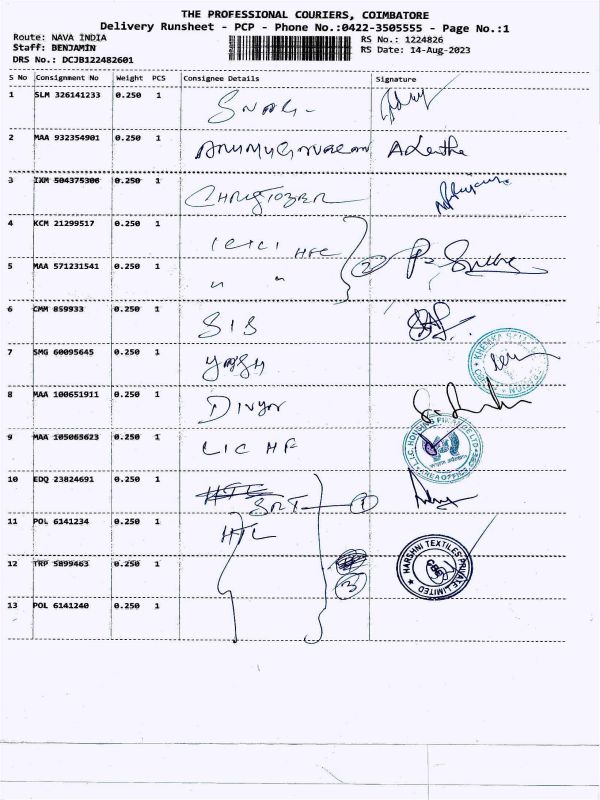 THE PROFESSIONAL COURIERS, COIMBATORE
Delivery Runsheet - PCP - Phone No.:0422-3505555 - Page No.:1
Route: NAVA INDIA RS No.: 1224826
Staff: BENJAMIN RS Date: 14-Aug-2023
DRS No.: DCJB122482601
S No Consignment No Weight PCS Consignee Details Signature
1 SLM 326141233 0.250 1
2 MAA 932354901 0.250 1
3 IXM 504375300 0.250 1
4 KCM 21299517 0.250 1 ICICI HFC
5 MAA 571231541 0.250 1 " " 2
6 CMM 859933 0.250 1 SIS
7 SMG 60095645 0.250 1 YAGSH
8 MAA 100651911 0.250 1 DIVYA
9 MAA 105065623 0.250 1 LIC HF
10 EDQ 23824691 0.250 1 SRT 1
11 POL 6141234 0.250 1 HTL
12 TRP 5899463 0.250 1 3
13 POL 6141240 0.250 1
HARSHNI TEXTILES PRIVATE LIMITED